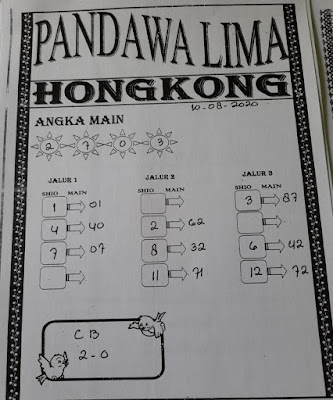 PANDAWA LIMA
HONGKONG
10-08-2020
ANGKA MAIN
2 7 0 3
JALUR 1
SHIO MAIN
1 01
4 40
7 07
JALUR 2
SHIO MAIN
2 62
8 32
11 71
JALUR 3
SHIO MAIN
3 87
6 42
12 72
CB
2-0